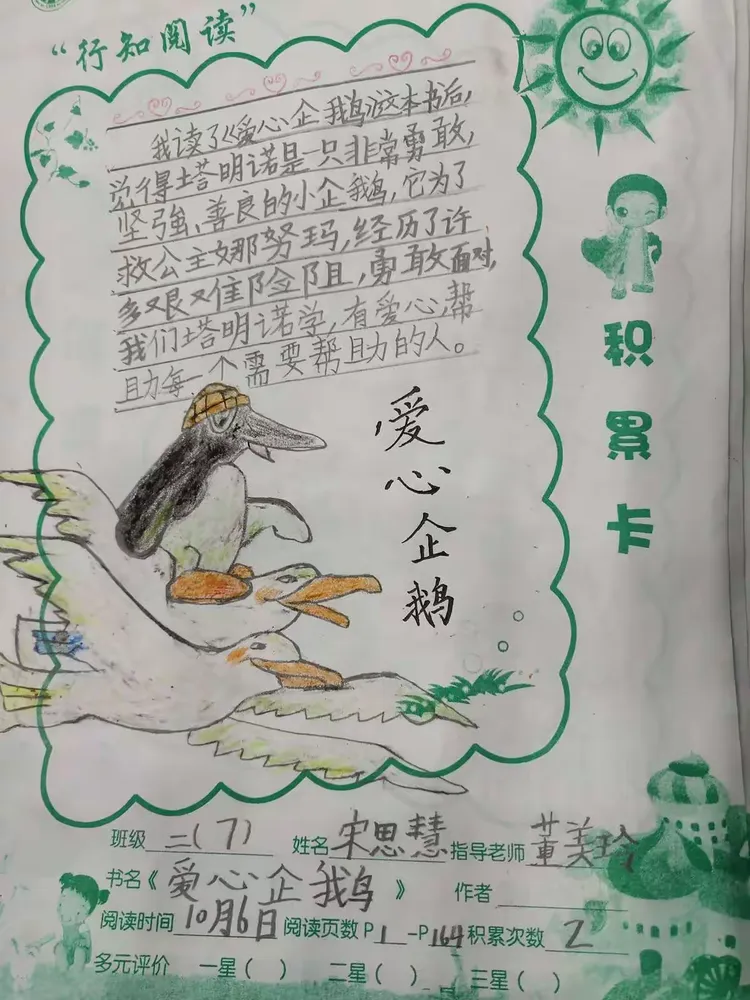 “行知阅读”
我读了《爱心企鹅》这本书后,
觉得塔明诺是一只非常勇敢,
坚强、善良的小企鹅,它为了
救公主娜努玛,经历了许
多艰难险阻,勇敢面对,
我们塔明诺学,有爱心,帮
助每一个需要帮助的人。
积累卡
爱心企鹅
班级 二(7) 姓名 宋思慧 指导老师 董美玲
书名《爱心企鹅》 作者
阅读时间 10月6日 阅读页数P1-P164 积累次数 2
多元评价 一星( ) 二星( ) 三星( )